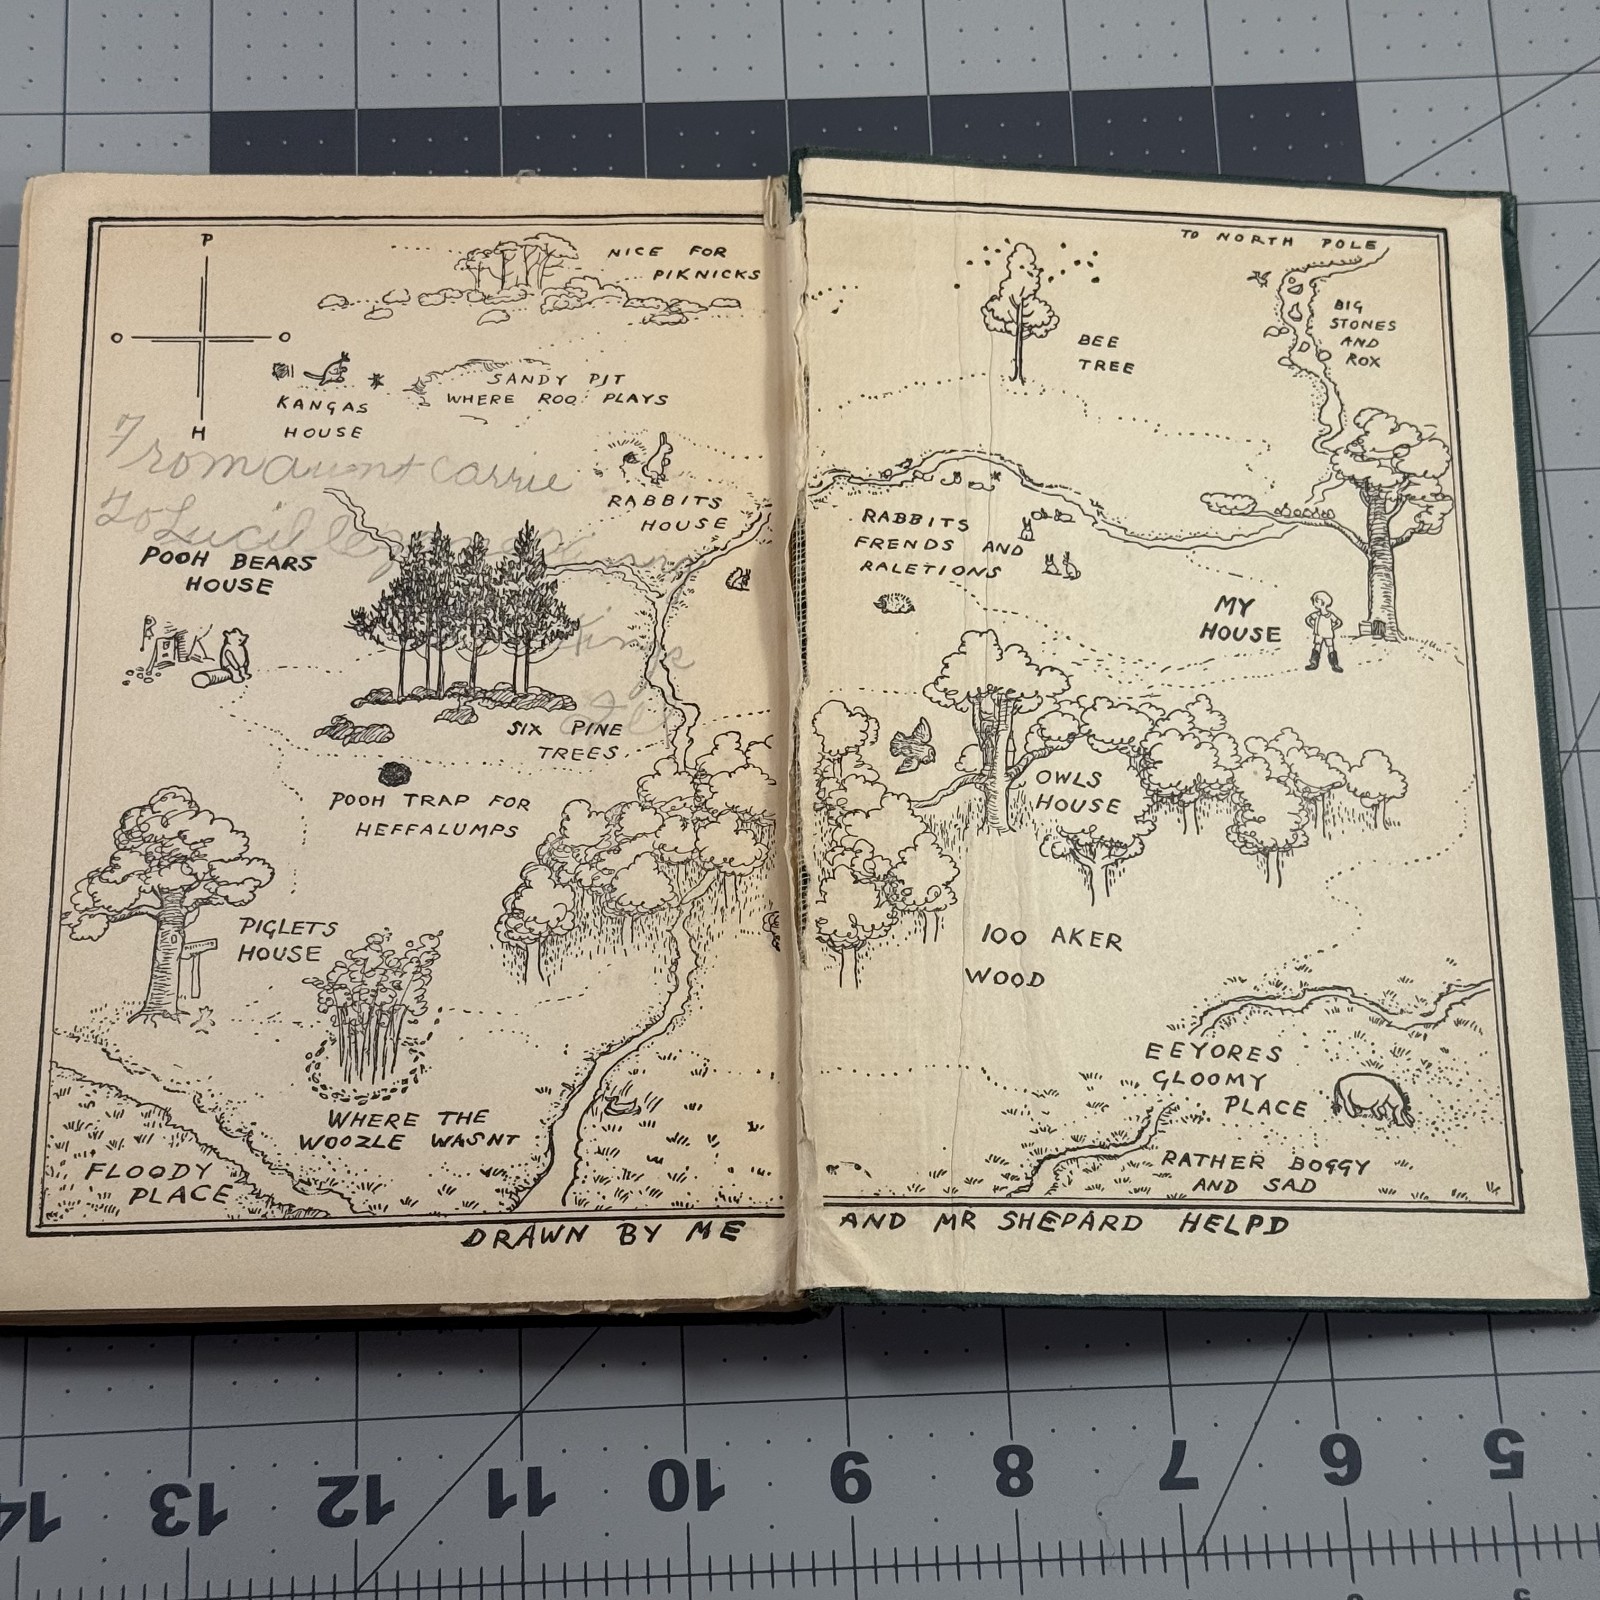 P
O O
H
NICE FOR
PIKNICKS
KANGAS
HOUSE
SANDY PIT
WHERE ROO PLAYS
From aunt Carrie
To Lucille
RABBITS
HOUSE
POOH BEARS
HOUSE
SIX PINE
TREES
POOH TRAP FOR
HEFFALUMPS
PIGLETS
HOUSE
WHERE THE
WOOZLE WASNT
FLOODY
PLACE
TO NORTH POLE
BIG
STONES
AND
ROX
BEE
TREE
RABBITS
FRENDS AND
RALETIONS
MY
HOUSE
OWLS
HOUSE
100 AKER
WOOD
EEYORES
GLOOMY
PLACE
RATHER BOGGY
AND SAD
DRAWN BY ME AND MR SHEPARD HELPD
14 13 12 11 10 9 8 7 6 5